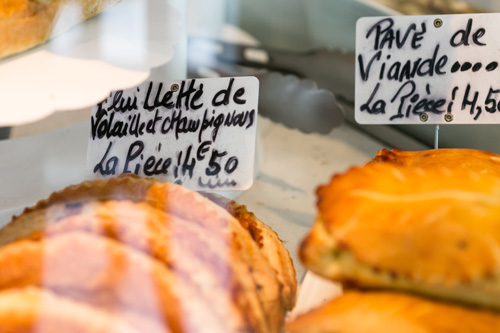 Feuilletté de
Volaille et champignons
La Pièce! 4€50
PAVÉ de
Viande.....
La Pièce! 4,50